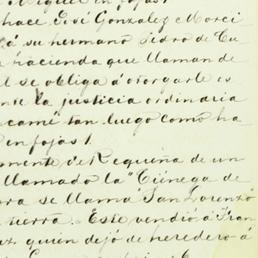 en fojas 1
hace José Gonzalez Morci
á su hermano Pedro de Cu
hacienda que llaman de
l se obliga á otorgarle es
nte la justicia ordinaria
camí tan luego como ha
en fojas 1.
mente de Requena de un
llamado la "Ciénega de
ra se llama San Lorenzo
tierra. Este vendió á Fran
quien dejó de heredero á